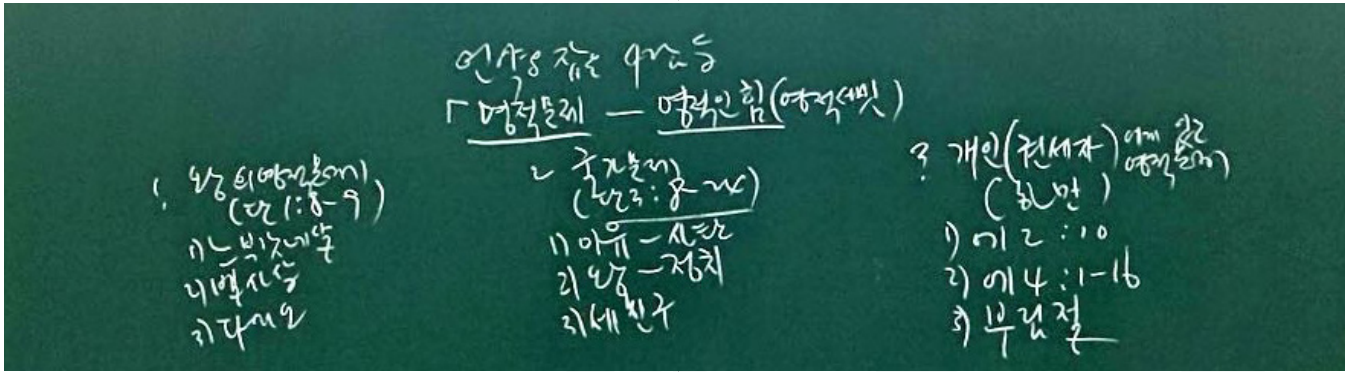 언약을 잡은 렘넌트
「영적문제 — 영적인 힘(영적서밋)
1. 왕의(영적문제)
(단1:8-9)
1) 느부갓네살
2) 벨사살
3) 다리오
2. 국가문제
(단3:8-24)
1) 이유-사단
2) 왕-정치
3) 세친구
3. 개인(권세자)에게 있는 영적문제
(하만)
1) 에2:10
2) 에4:1-16
3) 부림절